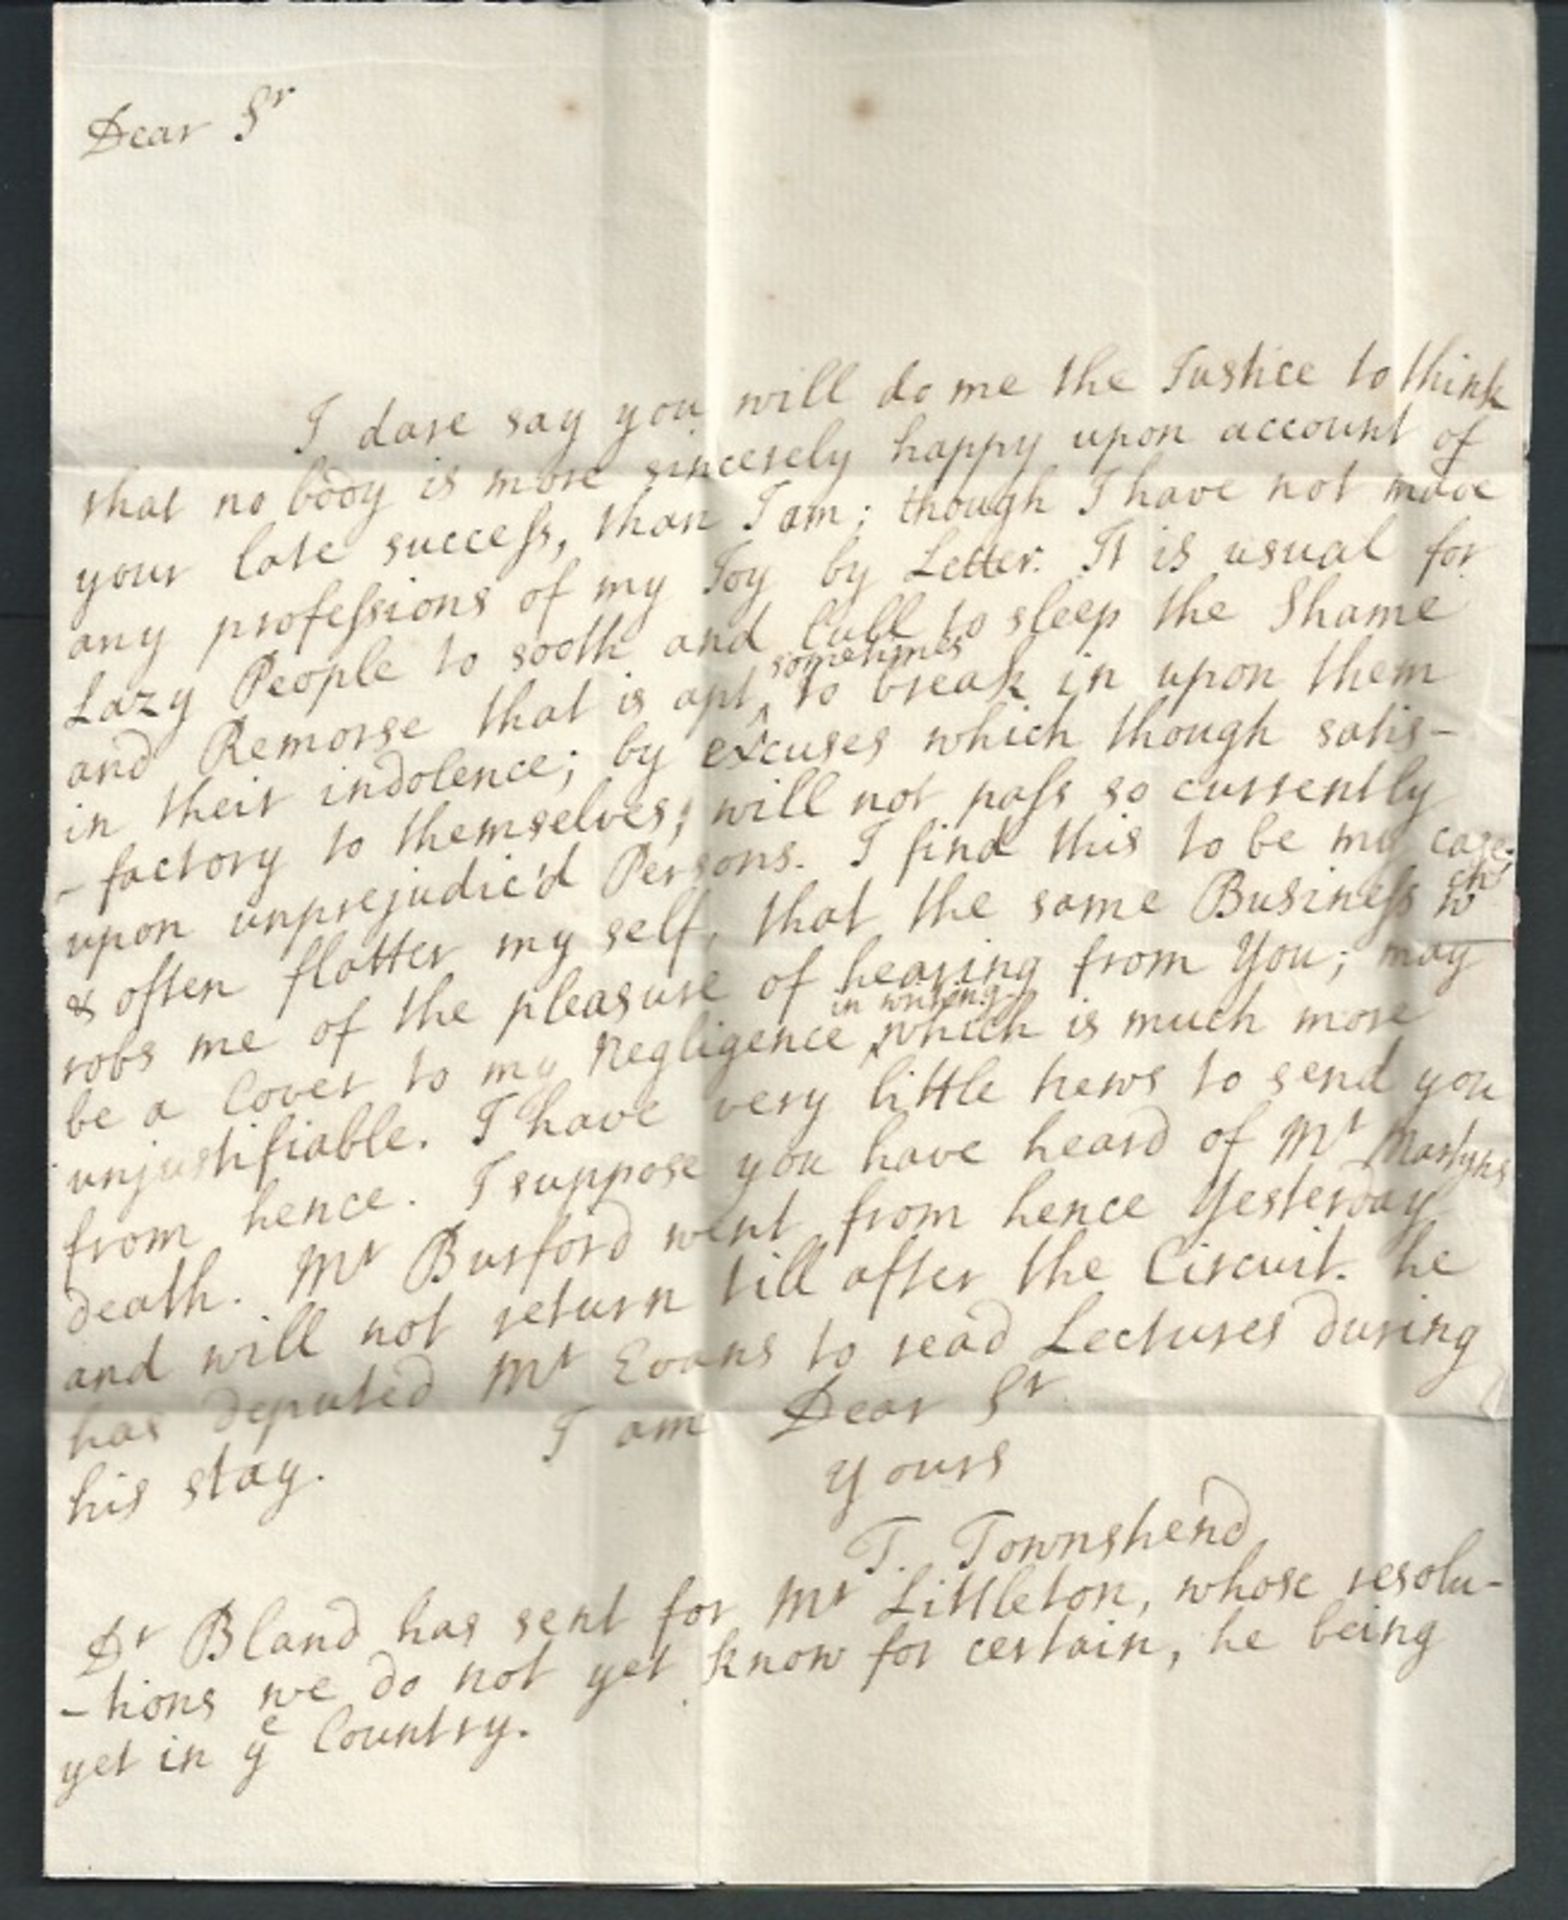 Dear Sr
I dare say you will do me the Justice to think
that no body is more sincerely happy upon account of
your late success, than I am; though I have not made
any professions of my Joy by Letter. It is usual for
Lazy People to sooth and lull to sleep the Shame
and Remorse that is apt ^sometimes to break in upon them
in their indolence; by excuses which though satis-
-factory to themselves; will not pass so currently
upon unprejudic'd Persons. I find this to be my case.
& often flatter my self, that the same Business wch
robs me of the pleasure of hearing from You; may
be a Cover to my Negligence ^in writing which is much more
unjustifiable. I have very little news to send you
from hence. I suppose you have heard of Mr Martyns
death. Mr Burford went from hence Yesterday
and will not return till after the Circuit. he
has deputed Mr Evans to read Lectures during
his stay. I am Dear Sr
Yours
T. Townshend
Dr Bland has sent for Mr Littleton, whose resolu-
-tions we do not yet know for certain, he being
yet in ye Country.